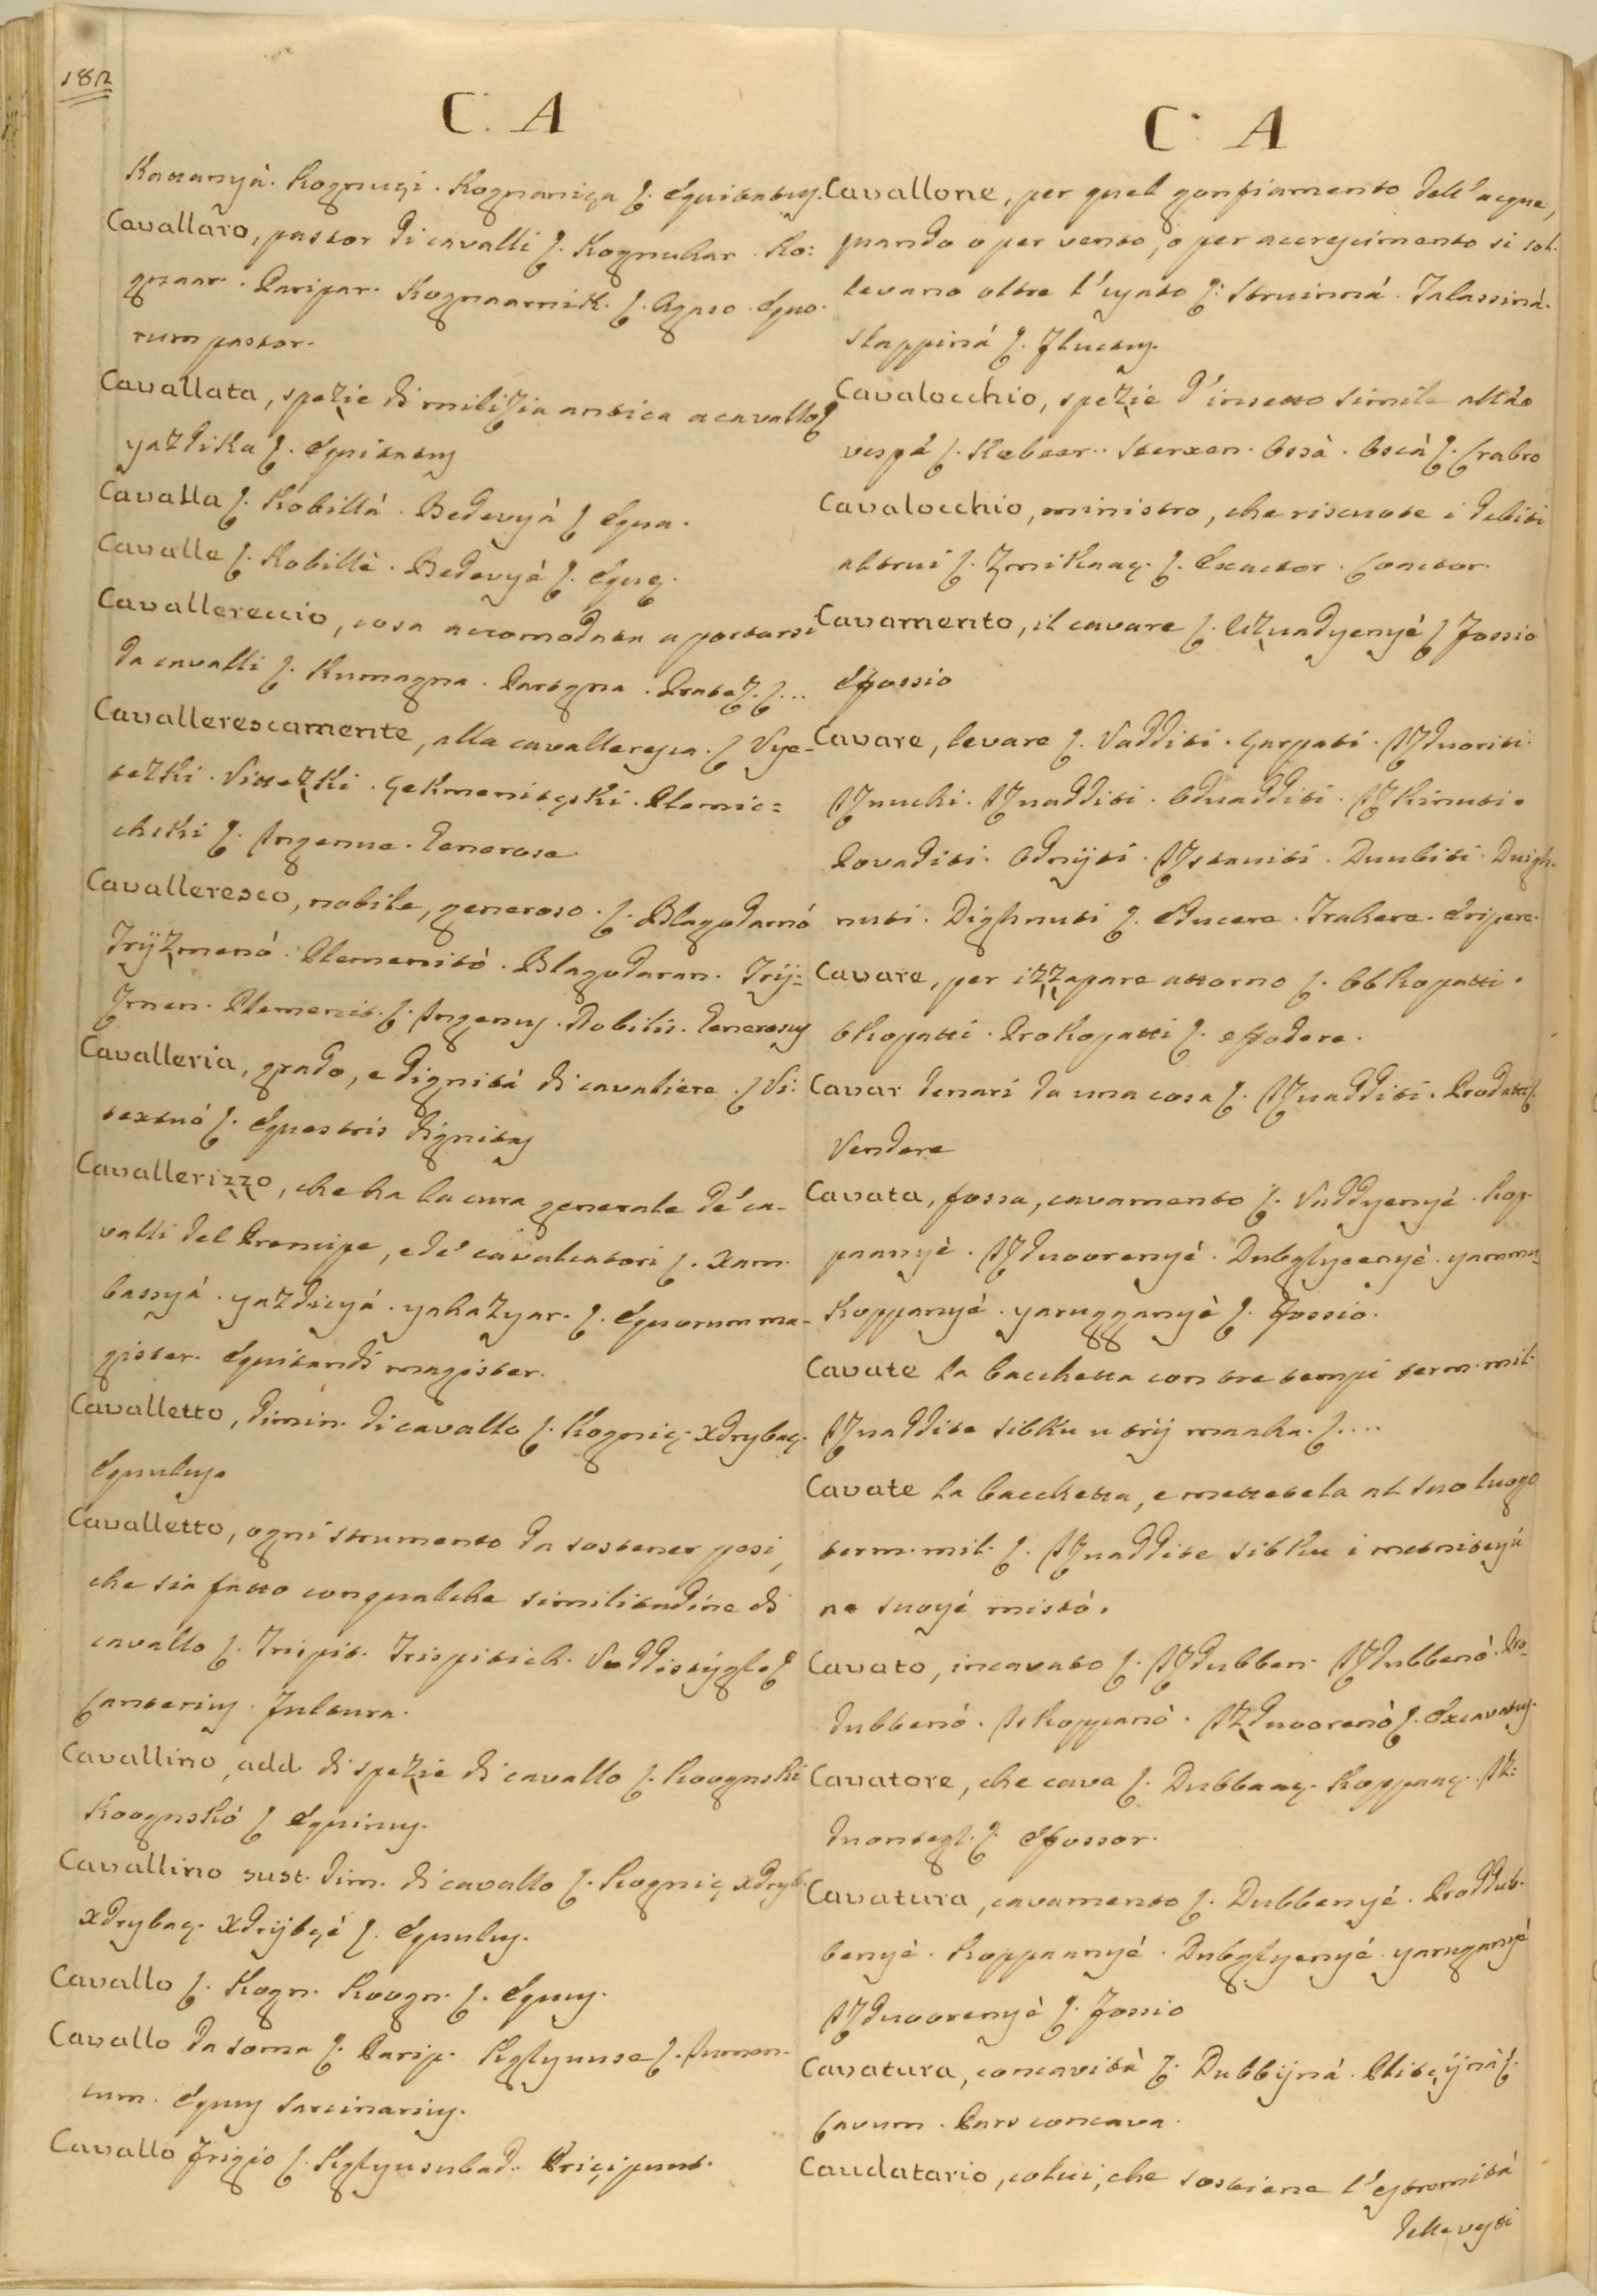 182
C. A
Kavanyà. Kognuçi. Kognaniça ſ. Equitatus.
Cavallaro, pastor di cavalli ſ. Kognuhar. Ko:
gnaar. Paripar. Kognaarnik. ſ. Agaso. Equo-
rum pastor.
Cavallata, spezie di milizia antica a cavallo ſ
yazdika ſ. Equitatus
Cavalla ſ. Kobillà. Bedevyà ſ Equa.
Cavalle ſ. Kobillè. Bedevyè ſ. Equę.
Cavallereccio, cosa accomodata a portarsi
da cavalli ſ. Rumagna. Partgna. Pratex. ſ...
Cavallerescamente, alla cavalleresca. ſ Vye-
tezki. Vittezki. çekmenitçski. Plemic=
chski ſ. Ingenue. Generose
Cavalleresco, nobile, generoso. ſ. Blagodarnó
Trÿzmenó. Plemenitò. Blagodaran. Trÿ=
zmen. Plemenit. ſ. Ingenus. Nobilis. Generosus
Cavalleria, grado, e dignità di cavaliere. ſ Vi:
textuó ſ. Equestris dignitas
Cavallerizzo, che ha la cura generale de' ca-
valli del Prencipe, e de' cavalcatori ſ. Xam
bassyá. yazdicyá. yahazyar. ſ. Equorum ma-
gister. Equitandi magister.
Cavalletto, dimin. di cavallo ſ. Kogniç. xdrybaç.
Equulus.
Cavalletto, ogni strumento da sostener pesi,
che sia fatto con qualche similitudine di
cavallo ſ. Tripit. Trispitich. ſ
Canterius. Fultura.
Cavallino, add. di spezie di cavallo ſ. Koognski
Koognskó ſ Equinus.
Cavallino sust. dim. di cavallo ſ. Kogniç xdryb.
xdrybaç. xdrÿbçé ſ. Equulus.
Cavallo ſ. Kogn. Koogn. ſ. Equus.
Cavallo da soma ſ. Parip. Kglyuuse ſ. Iumen-
tum. Equus sarcinarius.
Cavallo frigio ſ. Kglyusubad. Priçiput.
C. A
Cavallone, per quel gonfiamento dell'acque,
quando o per vento, o per accrescimento si sol-
levano oltre l'usato ſ. Struinná. Talassiná.
Slappiná ſ. Fluctus.
Cavalocchio, spezie d'insetto simile alla
vespa ſ. Kebaar. Sterxen. Ossà. Oscà ſ. Crabro
Cavalocchio, ministro, che riscuote i debiti
altrui ſ. Zmiknaç. ſ. Exactor. Coactor.
Cavamento, il cavare ſ. Uzvadyenyé ſ Fossio
Effossio
Cavare, levare ſ. Vadditi. çarpati. Izduoriti.
Izvuchi. Izvadditi. Odvadditi. Izkinuti.
Povaditi. Odnÿti. Izstaviti. Duubiti. Duigh-
nuti. Dighnuti ſ. Educere. Trahere. Eripere.
Cavare, per izzapare attorno ſ. Obkopatti.
Okopatti. Prokopatti ſ. effodere.
Cavar denari da una cosa ſ. Izvadditi. Prodatti ſ.
Vendere
Cavata, fossa, cavamento ſ. Vaddyenyé. Kop-
paanyé. Izduoorenyé. Dubglyeenyé. yamma
Koppanyé. yarugganyé ſ. Fossio.
Cavate la bacchetta con tre tempi term. mil.
Izvaddite sibku u trÿ maaha. ſ....
Cavate la bacchetta, e mettetela al suo luogo
term. mil. ſ. Izvaddite sibku i metniteyú
na suoyé mistó.
Cavato, incavato ſ. Izdubben. Izdubbenò. Pro-
dubbenó. Iskoppanò. Izduoorenò ſ. Excavatus.
Cavatore, che cava ſ. Dubbaaç. Koppaaç. Iz:
duontegl. ſ. Effossor.
Cavatura, cavamento ſ. Dubbenyé. Proddub-
benyé. Koppaanyé. Dubglyenyé. yaruganyé
Izduoorenyé ſ. Fossio
Cavatura, concavità ſ. Dubbÿná. Plitçÿnà ſ.
Cavum. Pars concava.
Caudatario, colui, che sostiene l'estremità
delle vesti